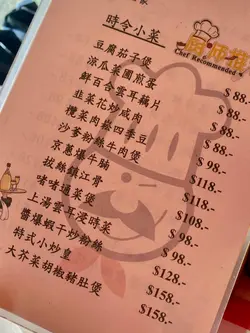 時令小菜
廚師推
Chef Recommended
豆腐茄子煲 $ 88.-
涼瓜菜圃煎蛋 $ 88.-
鮮百合雲耳藕片 $ 88.-
韭菜花炒鹹肉 $ 88.-
欖菜肉崧四季豆 $ 98.-
沙爹粉絲牛肉煲 $ 98.-
京蔥爆牛 $118.-
拔絲鎮江骨 $108.-
啫啫通菜煲 $ 98.-
上湯雲耳浸時菜 $ 98.-
醬爆蝦干炒粉絲 $128.-
特式小炒皇 $158.-
大芥菜胡椒豬肚煲 $158.-